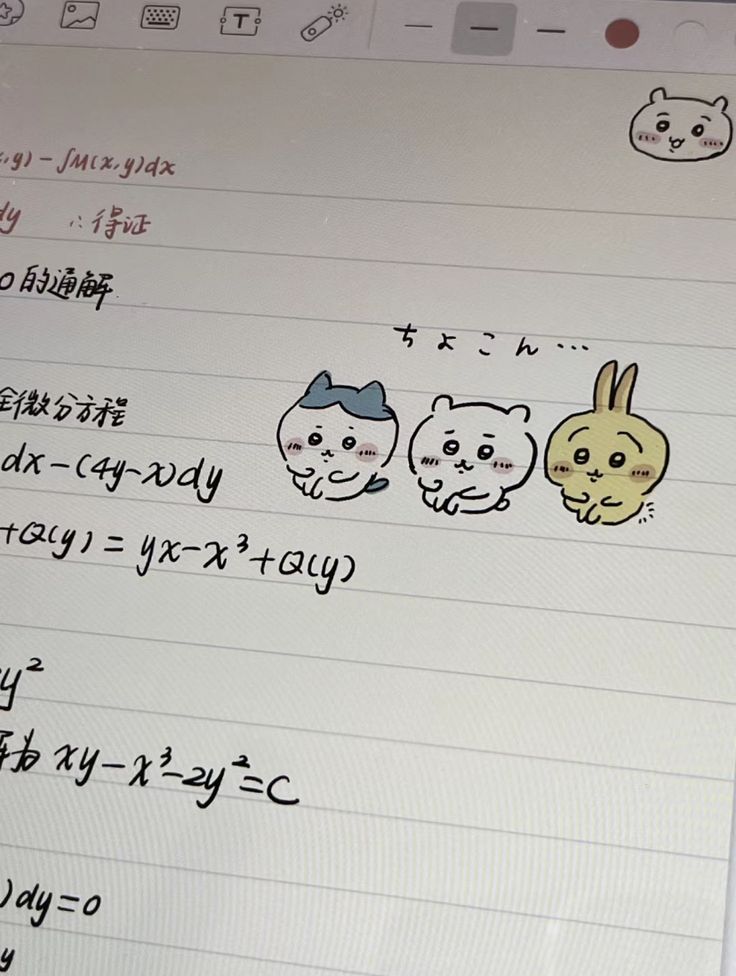 ,y) - ∫M(x,y)dx
dy ∴得证
0的通解
ちょこん…
全微分方程
dx-(4y-x)dy
+Q(y)=yx-x³+Q(y)
y²
为 xy-x³-2y²=C
)dy=0
y